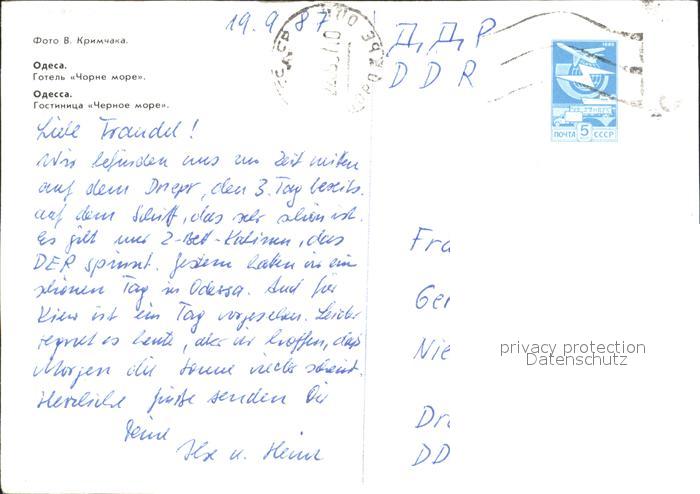 19.9.87
Д Д Р
D D R
Фото В. Кримчака.
Одеса.
Готель «Чорне море».
Одесса.
Гостиница «Черное море».
ПОЧТА 5 СССР
Liebe Traudel!
Wir befinden uns zur Zeit mitten
auf dem Dnepr, den 3. Tag bereits
auf dem Schiff, das sehr schön ist.
Es gibt nur 2-Bett-Kabinen, das
DER spinnt. Gestern hatten wir ein
schönen Tag in Odessa. Auch für
Kiew ist ein Tag vorgesehen. Leider
regnet es heute, aber wir hoffen, daß
Morgen die Sonne wieder scheint.
Herzliche Grüße senden Dir
Deine
Ilse u. Heinz
Fra
Ger
Nie
Dr
DD
privacy protection
Datenschutz